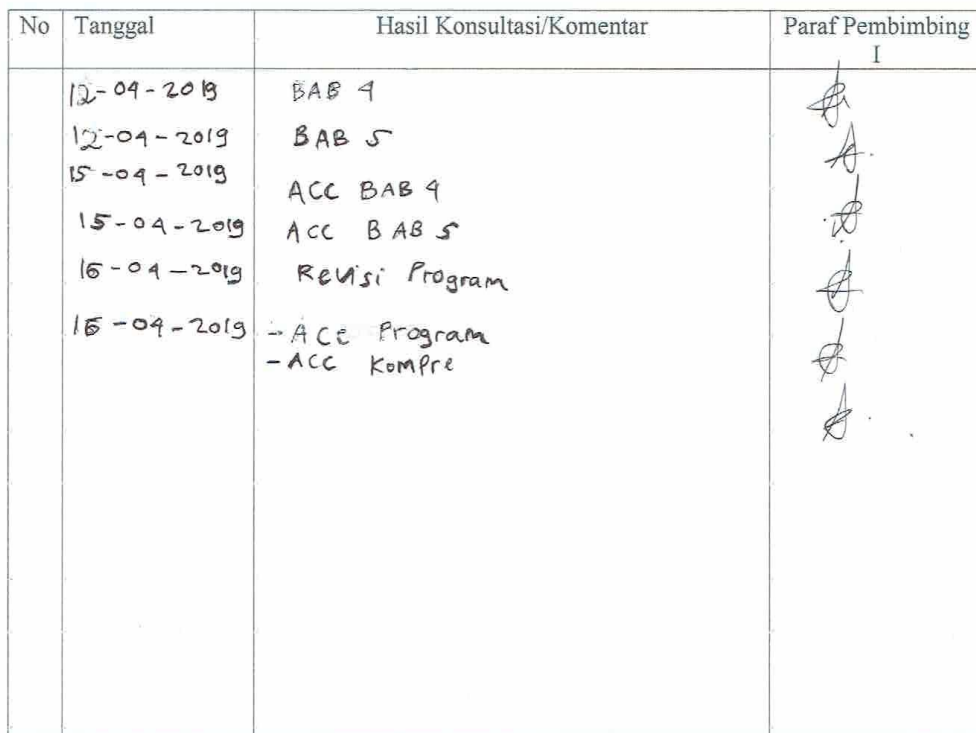 No Tanggal Hasil Konsultasi/Komentar Paraf Pembimbing
I
12-04-2019 BAB 4
12-04-2019 BAB 5
15-04-2019
ACC BAB 4
15-04-2019 ACC BAB 5
16-04-2019 Revisi Program
16-04-2019 - ACC Program
- ACC Kompre